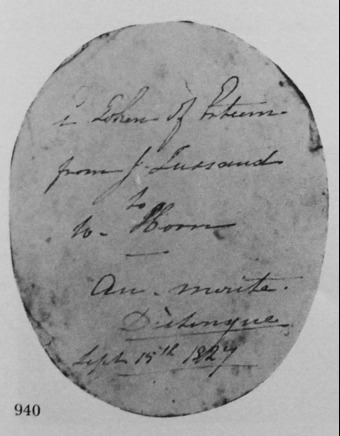 a token of Esteem
from J. Tussaud
to
W. Hoorn
Au. merite.
Distingue
Sept 15th 1827
940